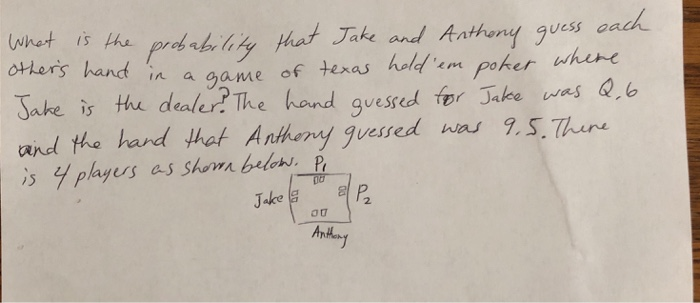 What is the probability that Jake and Anthony guess each
other's hand in a game of texas hold'em poker where
Jake is the dealer? The hand guessed for Jake was Q,6
and the hand that Anthony guessed was 9,5. There
is 4 players as shown below.
P1
Jake
P2
Anthony